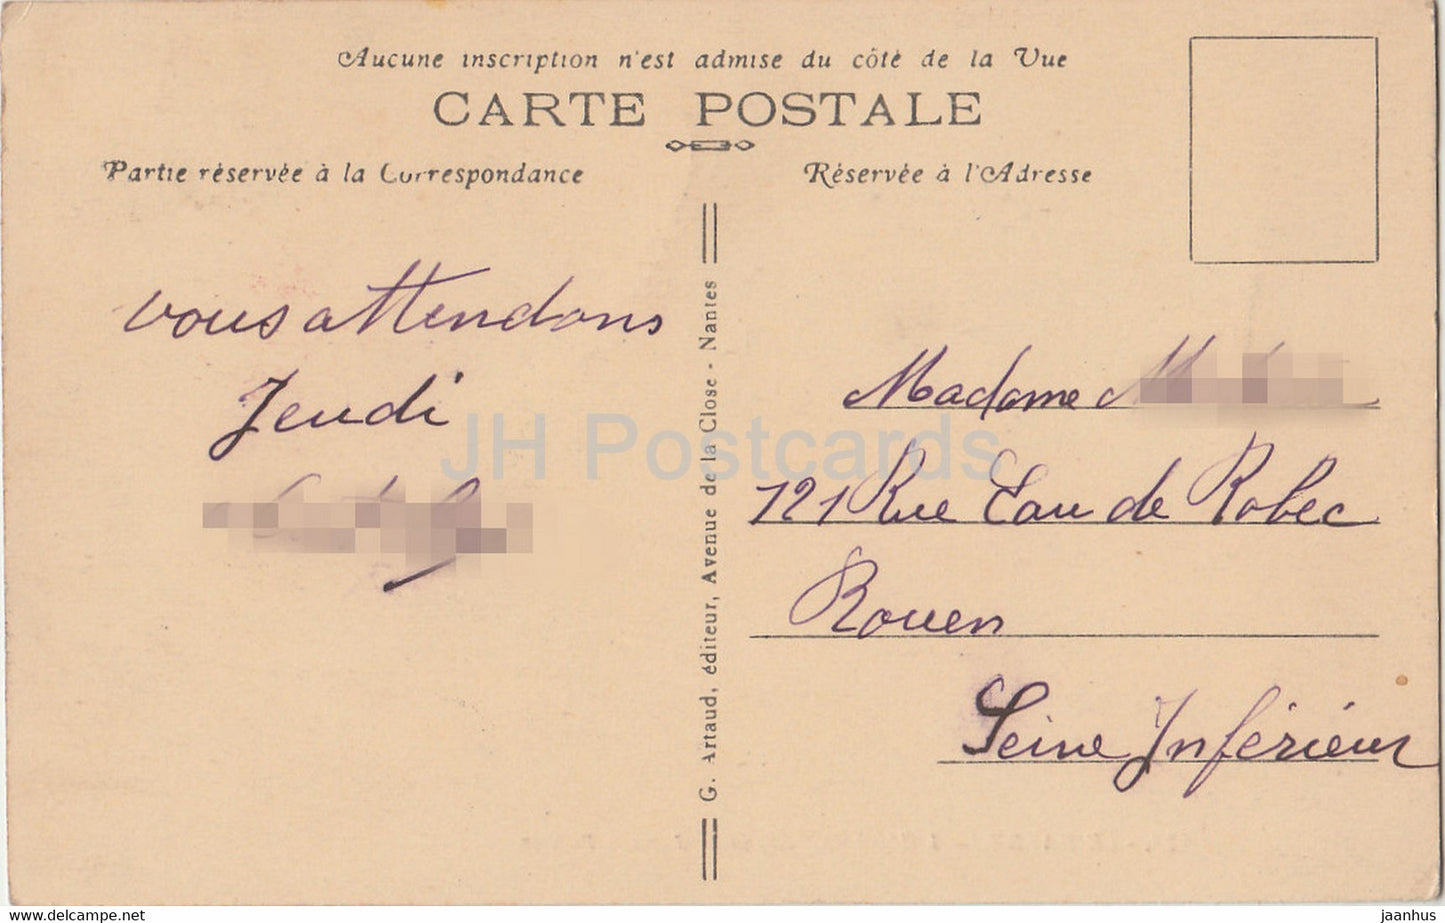 Aucune inscription n'est admise du côté de la Vue
CARTE POSTALE
Partie réservée à la Correspondance
Réservée à l'Adresse
vous attendons
Jeudi
G. Artaud, éditeur, Avenue de la Close - Nantes
Madame
121 Rue Eau de Robec
Rouen
Seine Inférieur
JH Postcards
www.delcampe.net
jaanhus